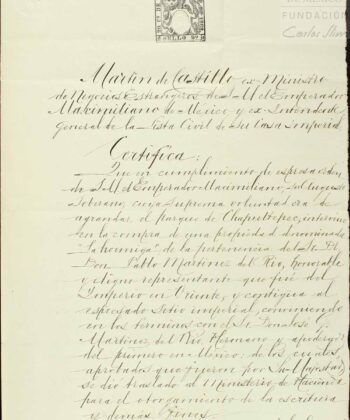 FUNDACIÓN
Carlos Slim
Martin de Castillo ex-Ministro
de Negocios Estrangeros de S. M. el Emperador
Maximiliano de Mexico y ex-Intendente
General de la Lista Civil de Su Casa Imperial
Certifica:
Que en cumplimiento de espresa orden
de S. M. el Emperador Maximiliano, del augusto
Soberano, cuya suprema voluntad era de
agrandar el parque de Chapultepec, intervine
en la compra de una propiedad denominada
"La hormiga" de la pertenencia del Sr. D.
Don Pablo Martinez del Rio, Honorable
y digno representante que fué del
Imperio en Oriente, y contigua al
espresado sitio imperial, conviniendo
en los terminos con el Sr. Donaloso J.
Martinez del Rio, Hermano y apoderado
del primero en Mexico; de los cuales,
aprobados que fueron por Su Majestad,
se dio traslado al Ministerio de Hacienda
para el otorgamiento de la escritura
y demas fines.